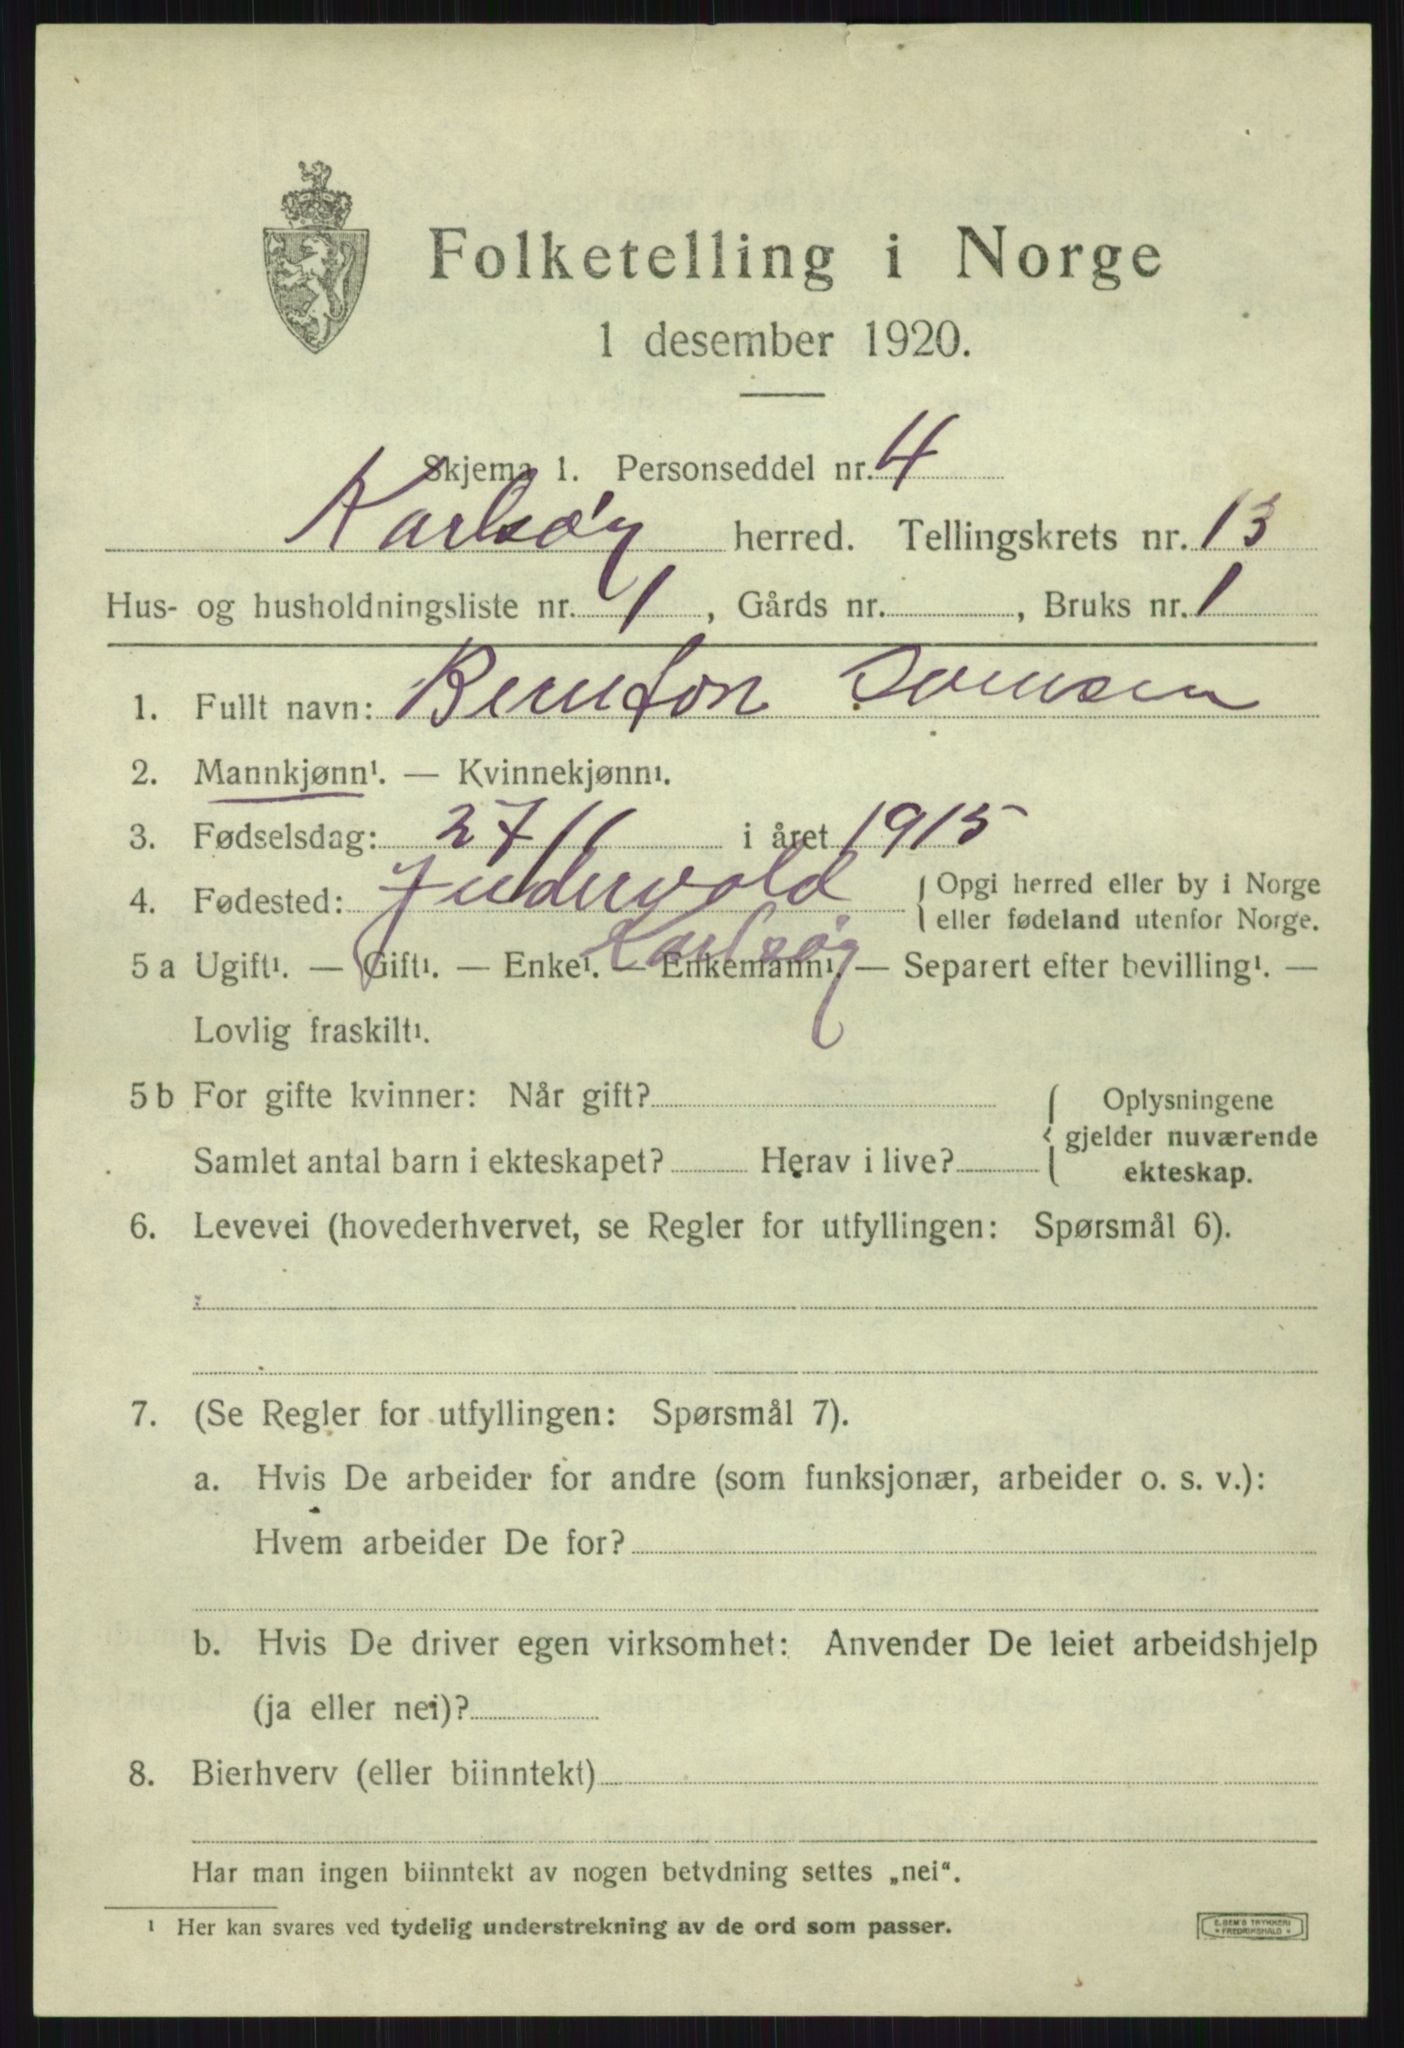 Folketelling i Norge
1 desember 1920.
Skjema 1. Personseddel nr. 4
Karlsøy herred. Tellingskrets nr. 13
Hus- og husholdningsliste nr. 1, Gårds nr. , Bruks nr. 1
1. Fullt navn: Bernton
2. Mannkjønn¹. — Kvinnekjønn¹.
3. Fødselsdag: 27/11 i året 1915
4. Fødested: { Opgi herred eller by i Norge
eller fødeland utenfor Norge.
Karlsøy
5 a Ugift¹. — Gift¹. — Enke¹. — Enkemann¹. — Separert efter bevilling¹. —
Lovlig fraskilt¹.
5 b For gifte kvinner: Når gift? { Oplysningene
gjelder nuværende
Samlet antal barn i ekteskapet? Herav i live? ekteskap.
6. Levevei (hovederhvervet, se Regler for utfyllingen: Spørsmål 6).
7. (Se Regler for utfyllingen: Spørsmål 7).
a. Hvis De arbeider for andre (som funksjonær, arbeider o. s. v.):
Hvem arbeider De for?
b. Hvis De driver egen virksomhet: Anvender De leiet arbeidshjelp
(ja eller nei)?
8. Bierhverv (eller biinntekt)
Har man ingen biinntekt av nogen betydning settes „nei“.
¹ Her kan svares ved tydelig understrekning av de ord som passer.
E. SEM'S TRYKKERI
* FREDRIKSHALD *